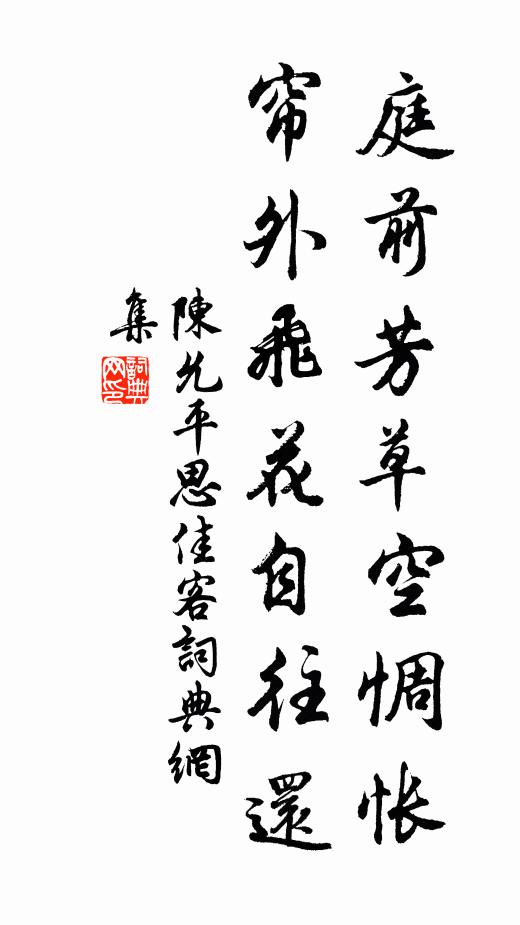 庭前芳草空惆怅
帘外飛花自往還
陳允平思佳客詞典網
集
詞典網印